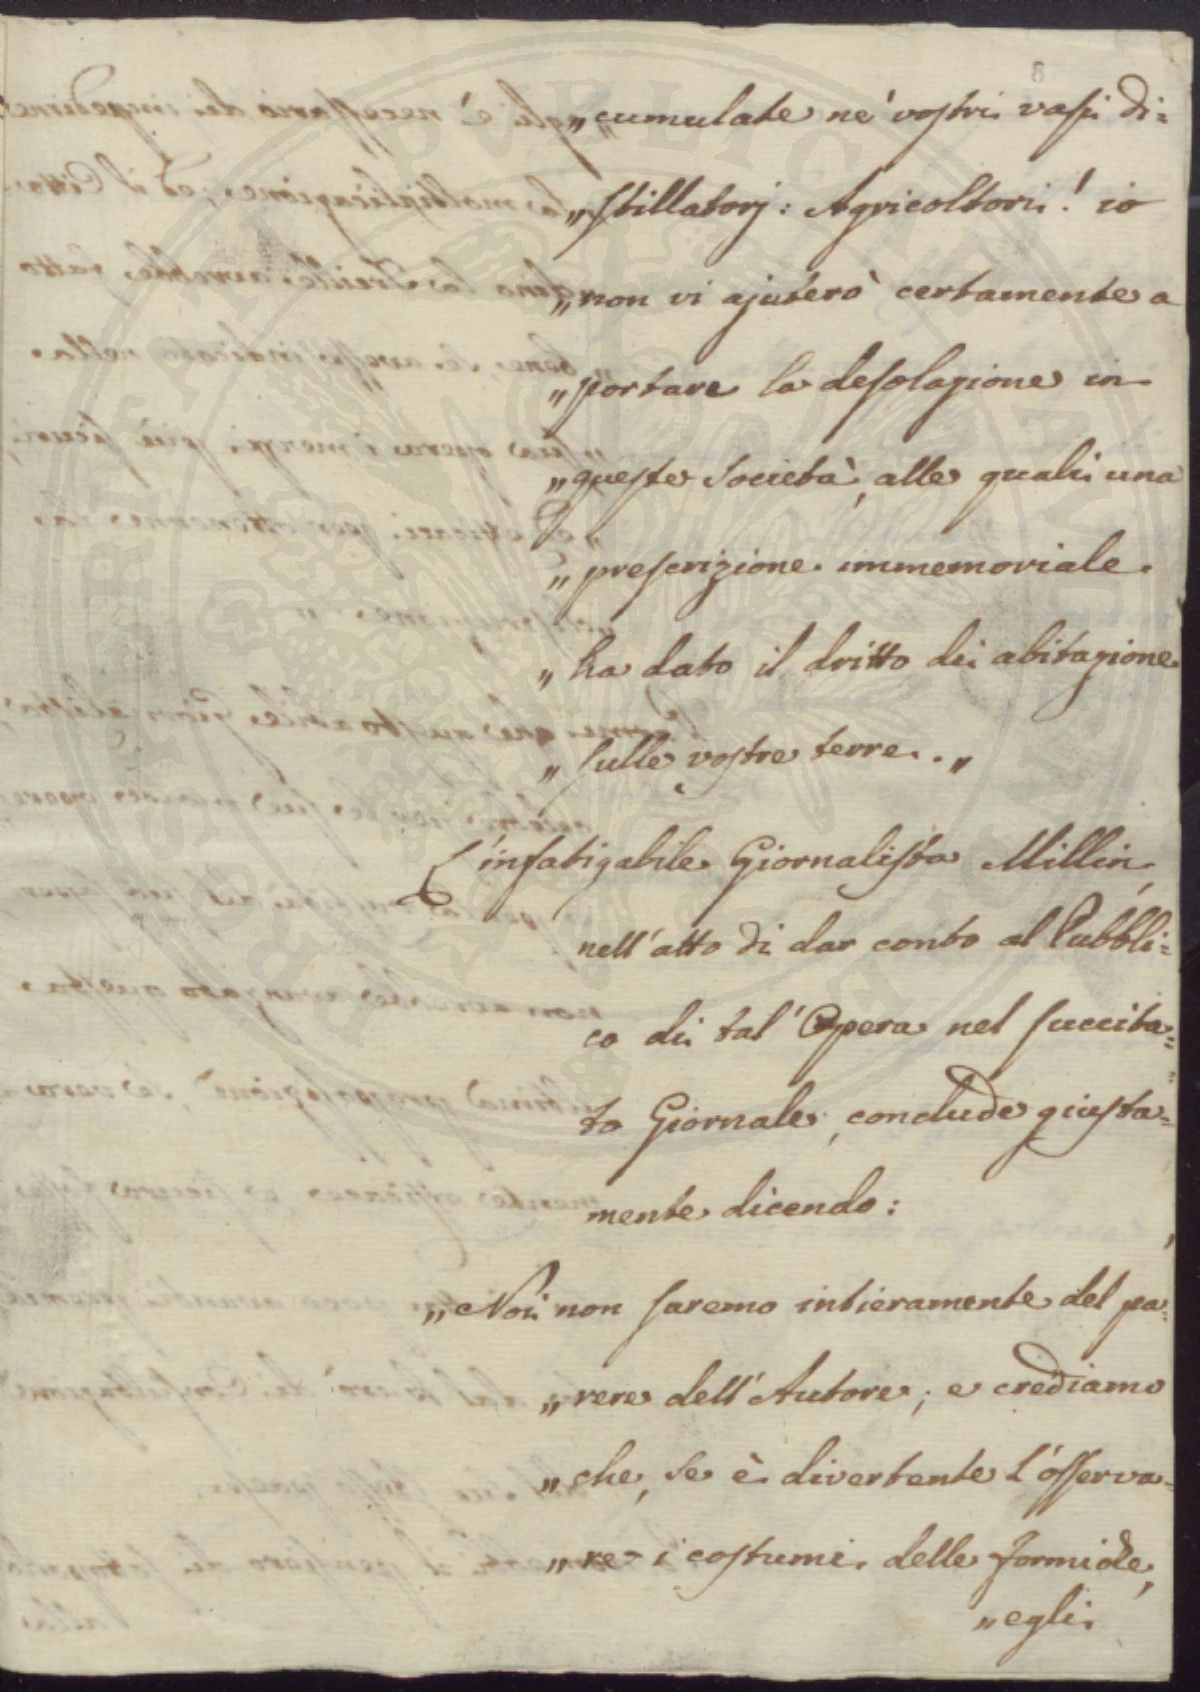 8
„cumulate ne' vostri vasi di=
„stillatorj: Agricoltori! io
„non vi ajuterò certamente a
„portare la desolazione in
„queste Società, alle quali una
„prescrizione immemoriale
„ha dato il dritto di abitazione
„sulle vostre terre..„
L'infatigabile Giornalista Millin,
nell'atto di dar conto al Pubbli=
co di tal'Opera nel succita=
to Giornale, conclude giusta=
mente dicendo:
„Noi non saremo intieramente del pa=
„rere dell'Autore; e crediamo
„che, se è divertente l'osserva=
„re i costumi delle formiche,
„egli